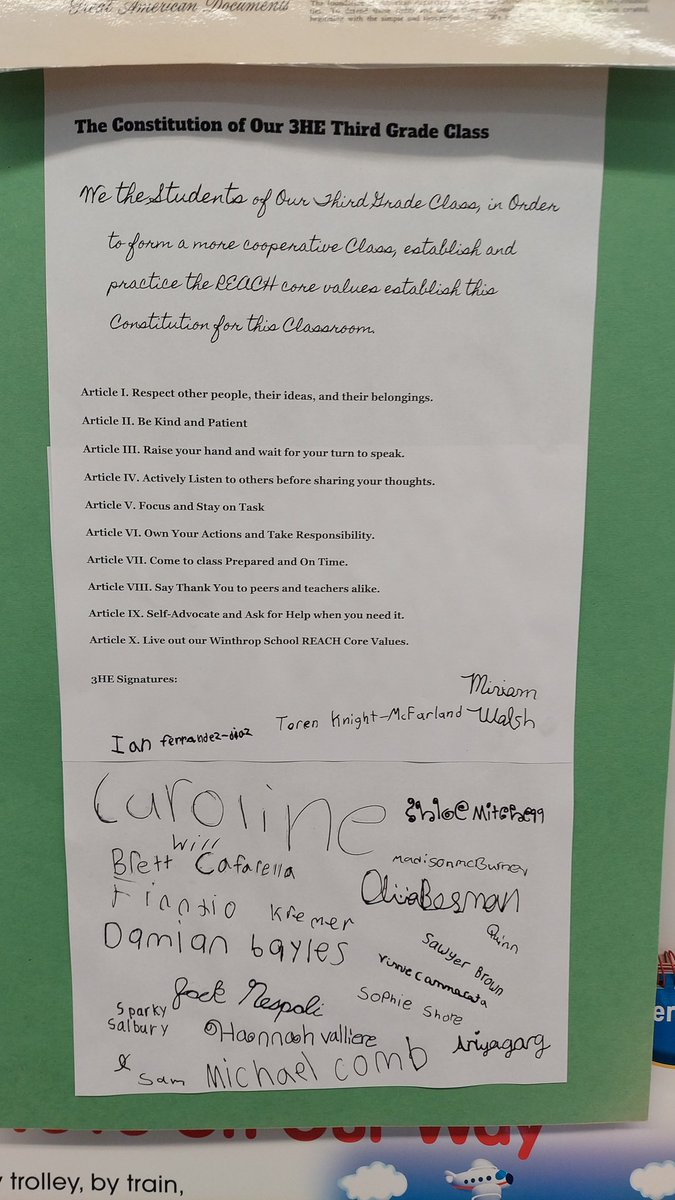 Great American Documents
The Constitution of Our 3HE Third Grade Class
We the Students of Our Third Grade Class, in Order
to form a more cooperative Class, establish and
practice the REACH core values establish this
Constitution for this Classroom.
Article I. Respect other people, their ideas, and their belongings.
Article II. Be Kind and Patient
Article III. Raise your hand and wait for your turn to speak.
Article IV. Actively Listen to others before sharing your thoughts.
Article V. Focus and Stay on Task
Article VI. Own Your Actions and Take Responsibility.
Article VII. Come to class Prepared and On Time.
Article VIII. Say Thank You to peers and teachers alike.
Article IX. Self-Advocate and Ask for Help when you need it.
Article X. Live out our Winthrop School REACH Core Values.
3HE Signatures:
Miriam
Walsh
Toren Knight-McFarland
Ian ferrandez-diaz
Caroline
Chloe Mitchell
Will
Brett Cafarella
madison mcBurney
Olivia Besman
Kremer
Quinn
Damian bayles
Sawyer Brown
vinnie cammarata
Sophie Shore
Jack Nespoli
Sparky
Salbury
Hannah Valliere
Ariya garg
Sam
Michael comb
er
On Our Way
trolley, by train,